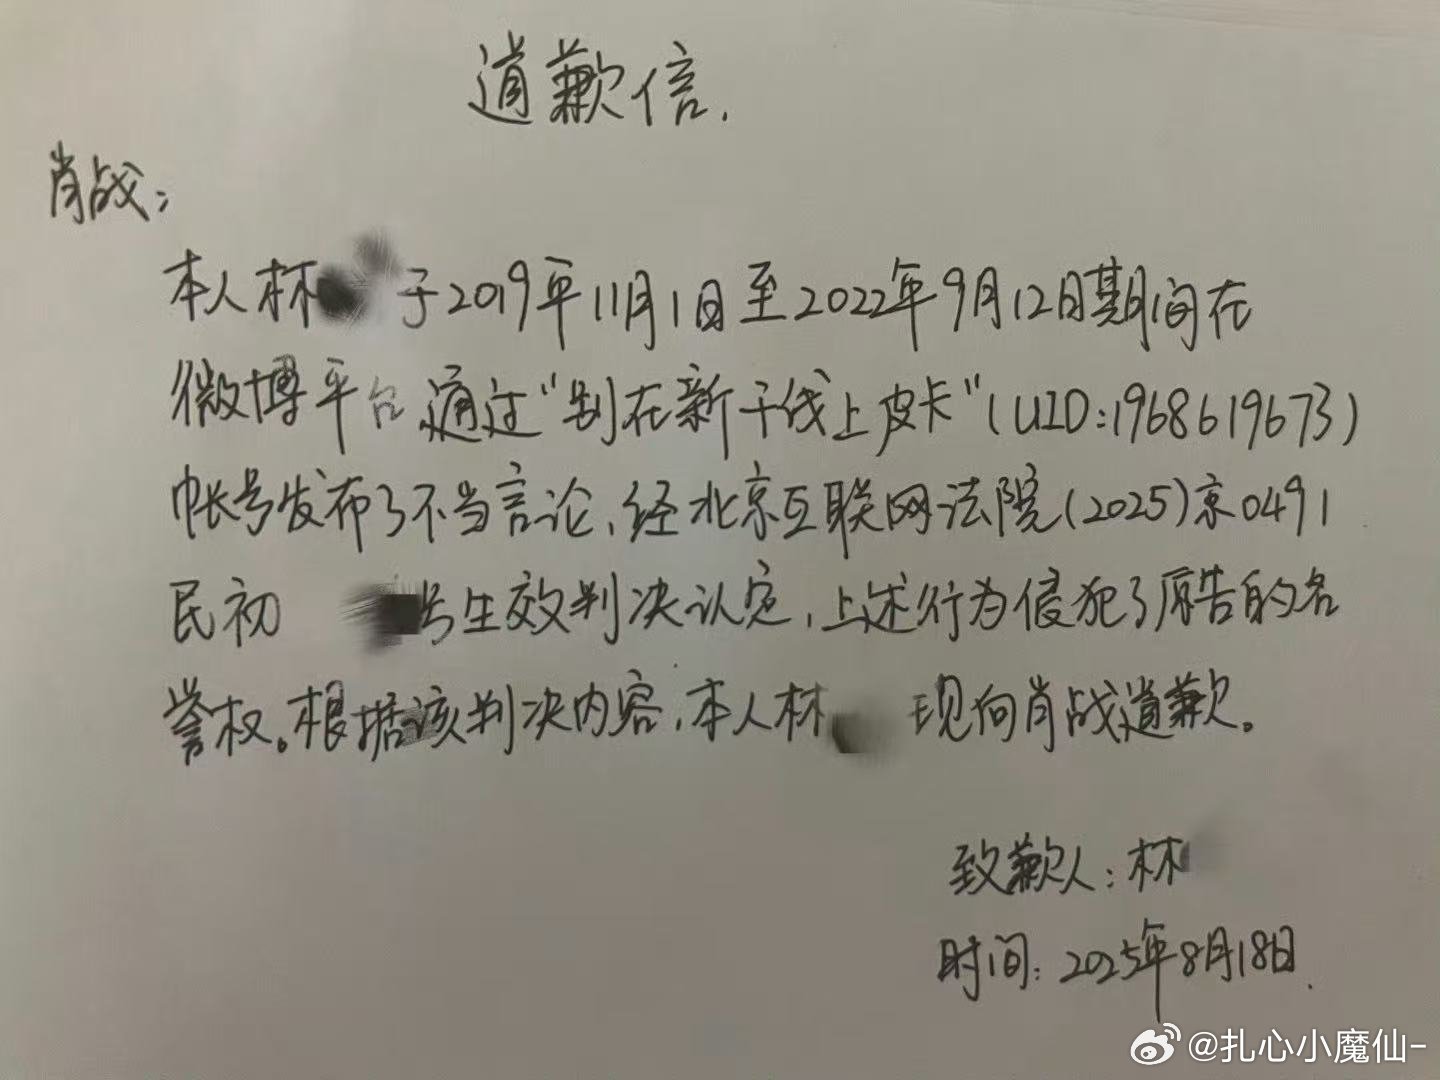 道歉信.
肖战:
本人林 于2019年11月1日至2022年9月12日期间在
微博平台通过“别在新干线上皮卡”(UID:1968619673)
帐号发布了不当言论,经北京互联网法院(2025)京0491
民初 号生效判决认定,上述行为侵犯了原告的名
誉权。根据该判决内容,本人林 现向肖战道歉。
致歉人:林
时间:2025年8月18日.
@扎心小魔仙-